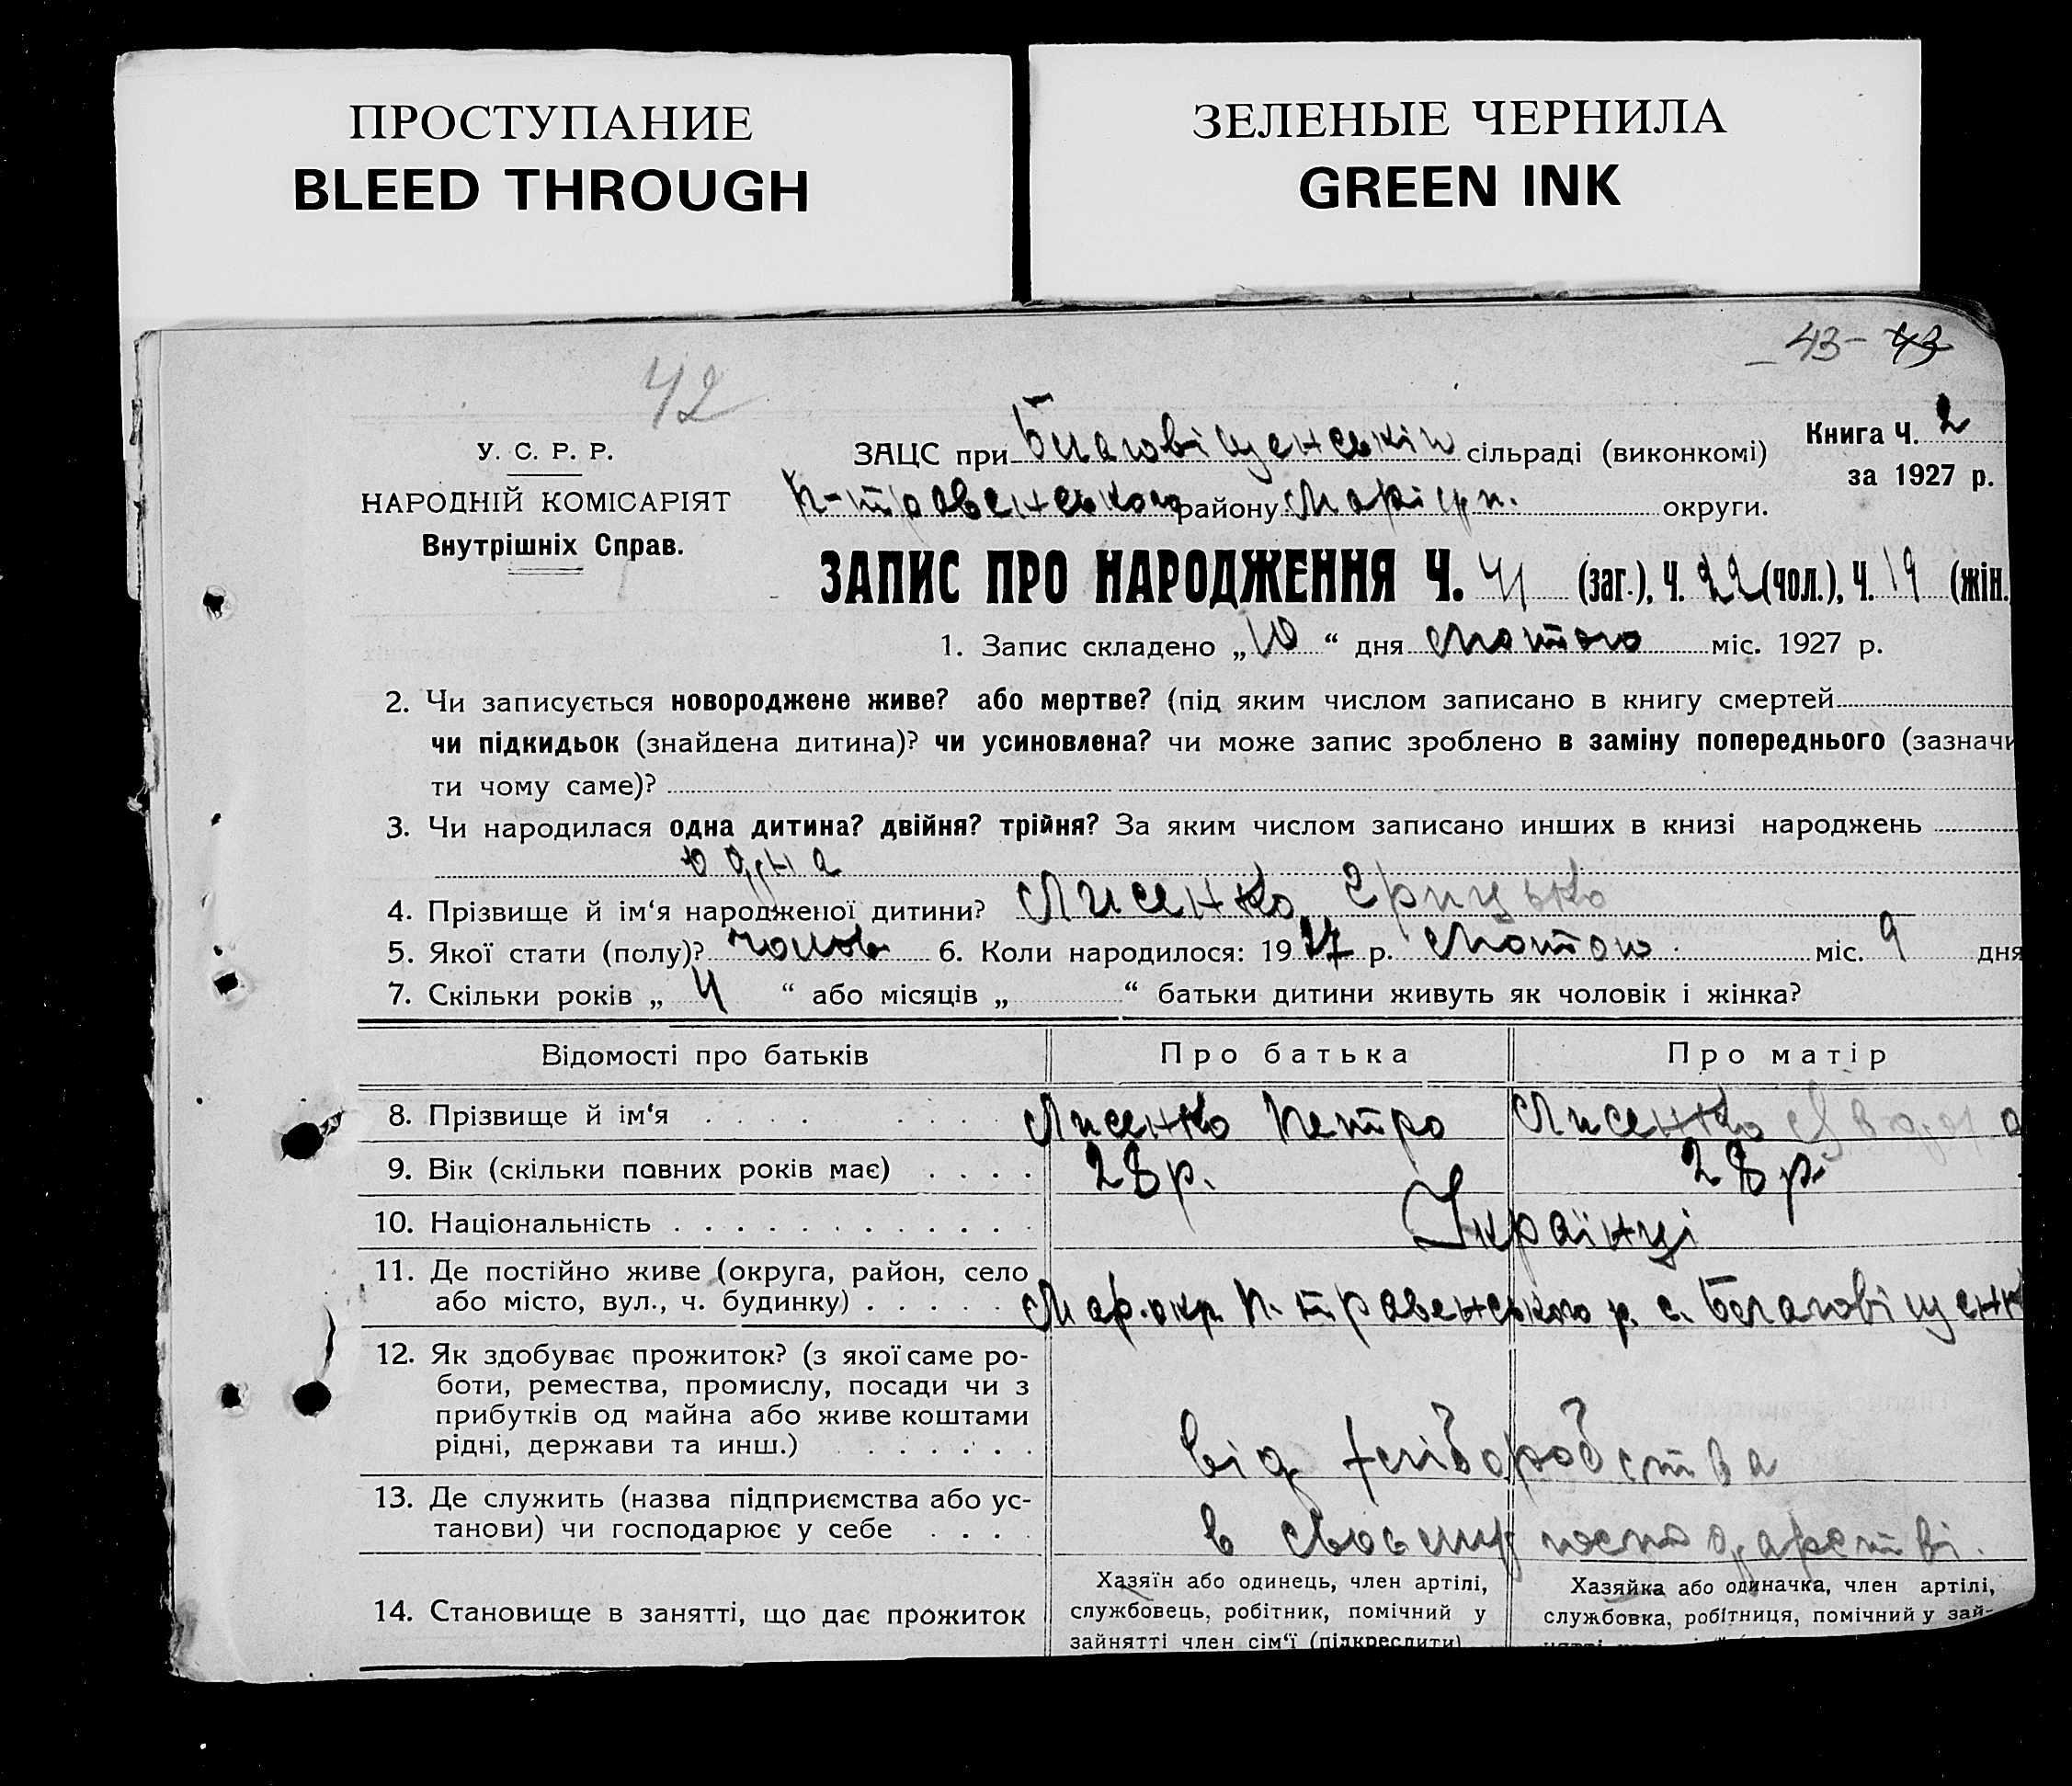 ПРОСТУПАНИЕ
BLEED THROUGH
ЗЕЛЕНЫЕ ЧЕРНИЛА
GREEN INK
— 43 — 43
42
У. С. Р. Р.
НАРОДНІЙ КОМІСАРІЯТ
Внутрішніх Справ.
ЗАЦС при Благовіщенській сільраді (виконкомі)
Книга Ч. 2
за 1927 р.
П-травенського району Маріюп. округи.
ЗАПИС ПРО НАРОДЖЕННЯ Ч. 41 (заг.), Ч. 22 (чол.), Ч. 19 (жін.
1. Запис складено „10“ дня лютого міс. 1927 р.
2. Чи записується новороджене живе? або мертве? (під яким числом записано в книгу смертей
чи підкидьок (знайдена дитина)? чи усиновлена? чи може запис зроблено в заміну попереднього (зазначи
ти чому саме)?
3. Чи народилася одна дитина? двійня? трійня? За яким числом записано инших в книзі народжень
одна
4. Прізвище й ім‘я народженої дитини? Лисенко Грицько
5. Якої стати (полу)? чолов 6. Коли народилося: 1927 р. лютого міс. 9 дня
7. Скільки років „ 4 “ або місяців „ “ батьки дитини живуть як чоловік і жінка?
Відомості про батьків Про батька Про матір
8. Прізвище й ім‘я Лисенко Петро Лисенко
9. Вік (скільки повних років має) 28 р. 28 р.
10. Національність Українці
11. Де постійно живе (округа, район, село
або місто, вул., ч. будинку) Мар. окр. П-травенського р. с. Благовіщенк
12. Як здобуває прожиток? (з якої саме ро-
боти, ремества, промислу, посади чи з
прибутків од майна або живе коштами
рідні, держави та инш.) від хліборобства
13. Де служить (назва підприємства або ус-
танови) чи господарює у себе в своєму господарстві.
14. Становище в занятті, що дає прожиток
Хазяїн або одинець, член артілі,
службовець, робітник, помічний у
зайнятті член сім‘ї (підкреслити)
Хазяйка або одиначка, член артілі,
службовка, робітниця, помічний у зай-